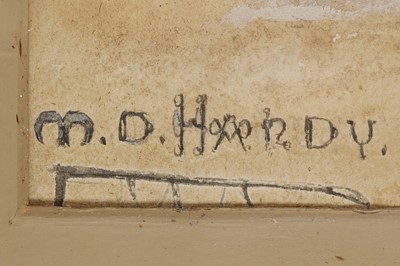 M. D. HARDY.